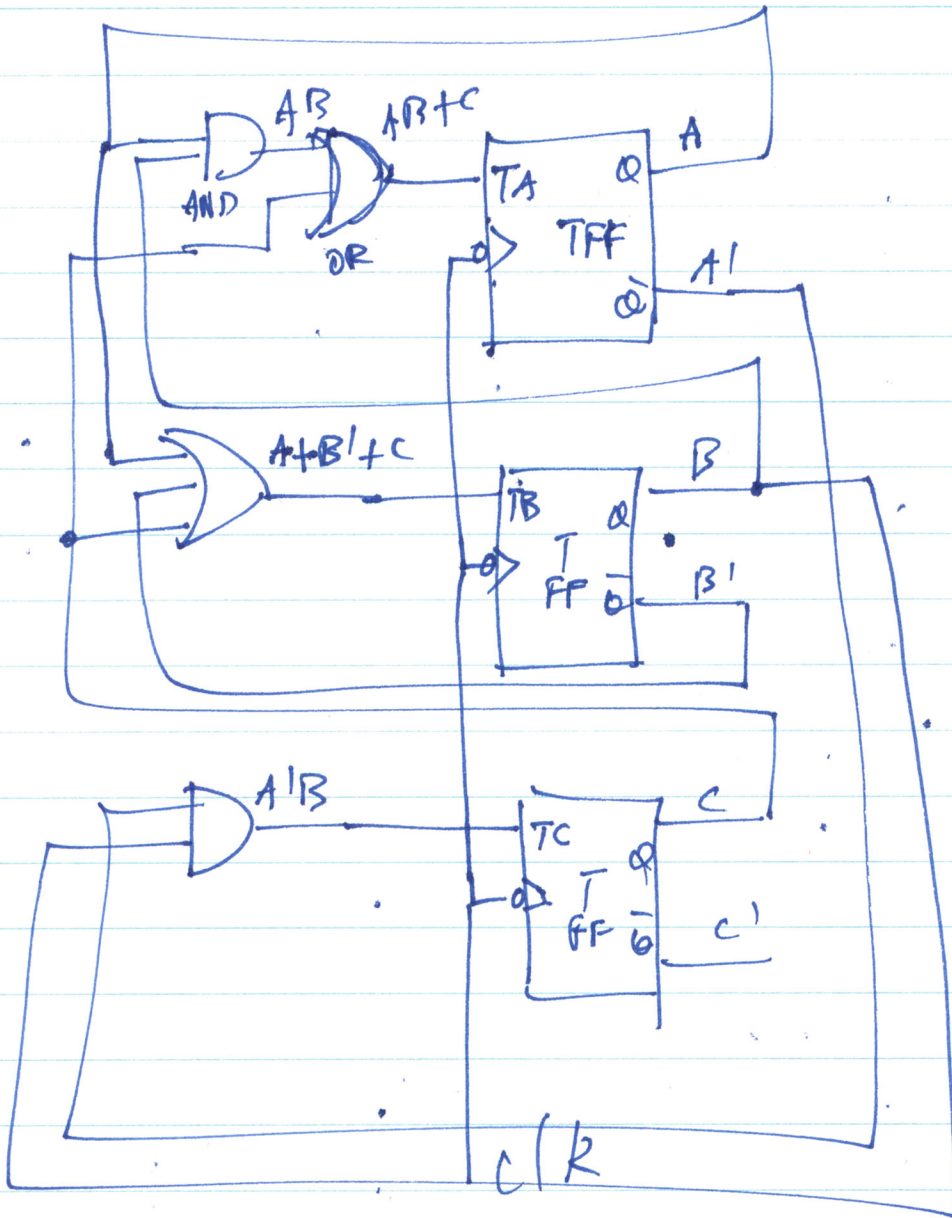 AB
AB+C
A
AND
OR
TA
Q
TFF
Q̅
A'
A+B'+C
B
TB
Q
T
FF
Q̅
B'
A'B
C
TC
Q
T
FF
Q̅
C'
clk